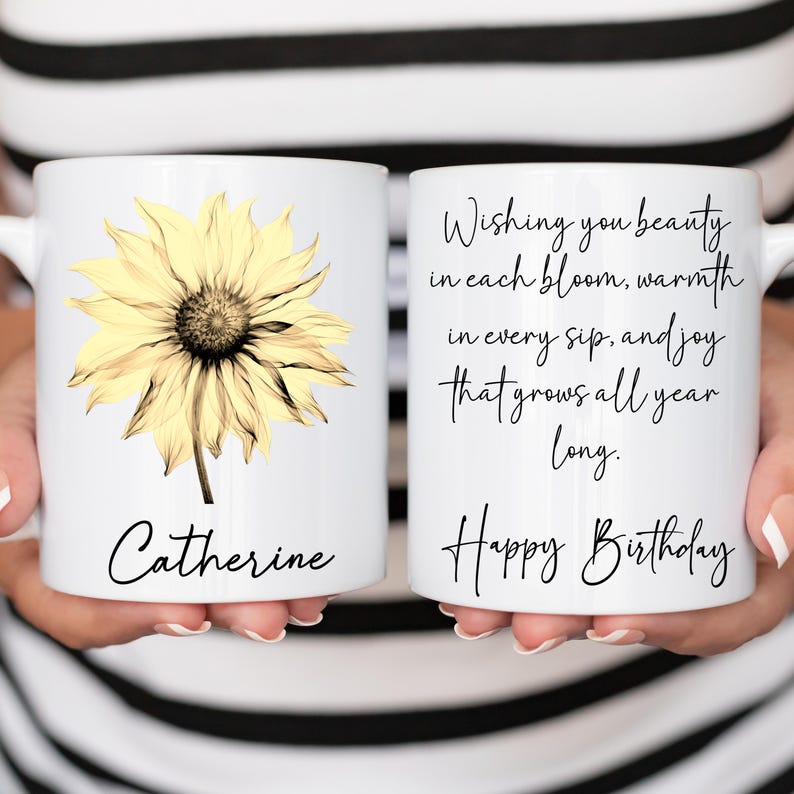 Catherine
Wishing you beauty
in each bloom, warmth
in every sip, and joy
that grows all year
long.
Happy Birthday